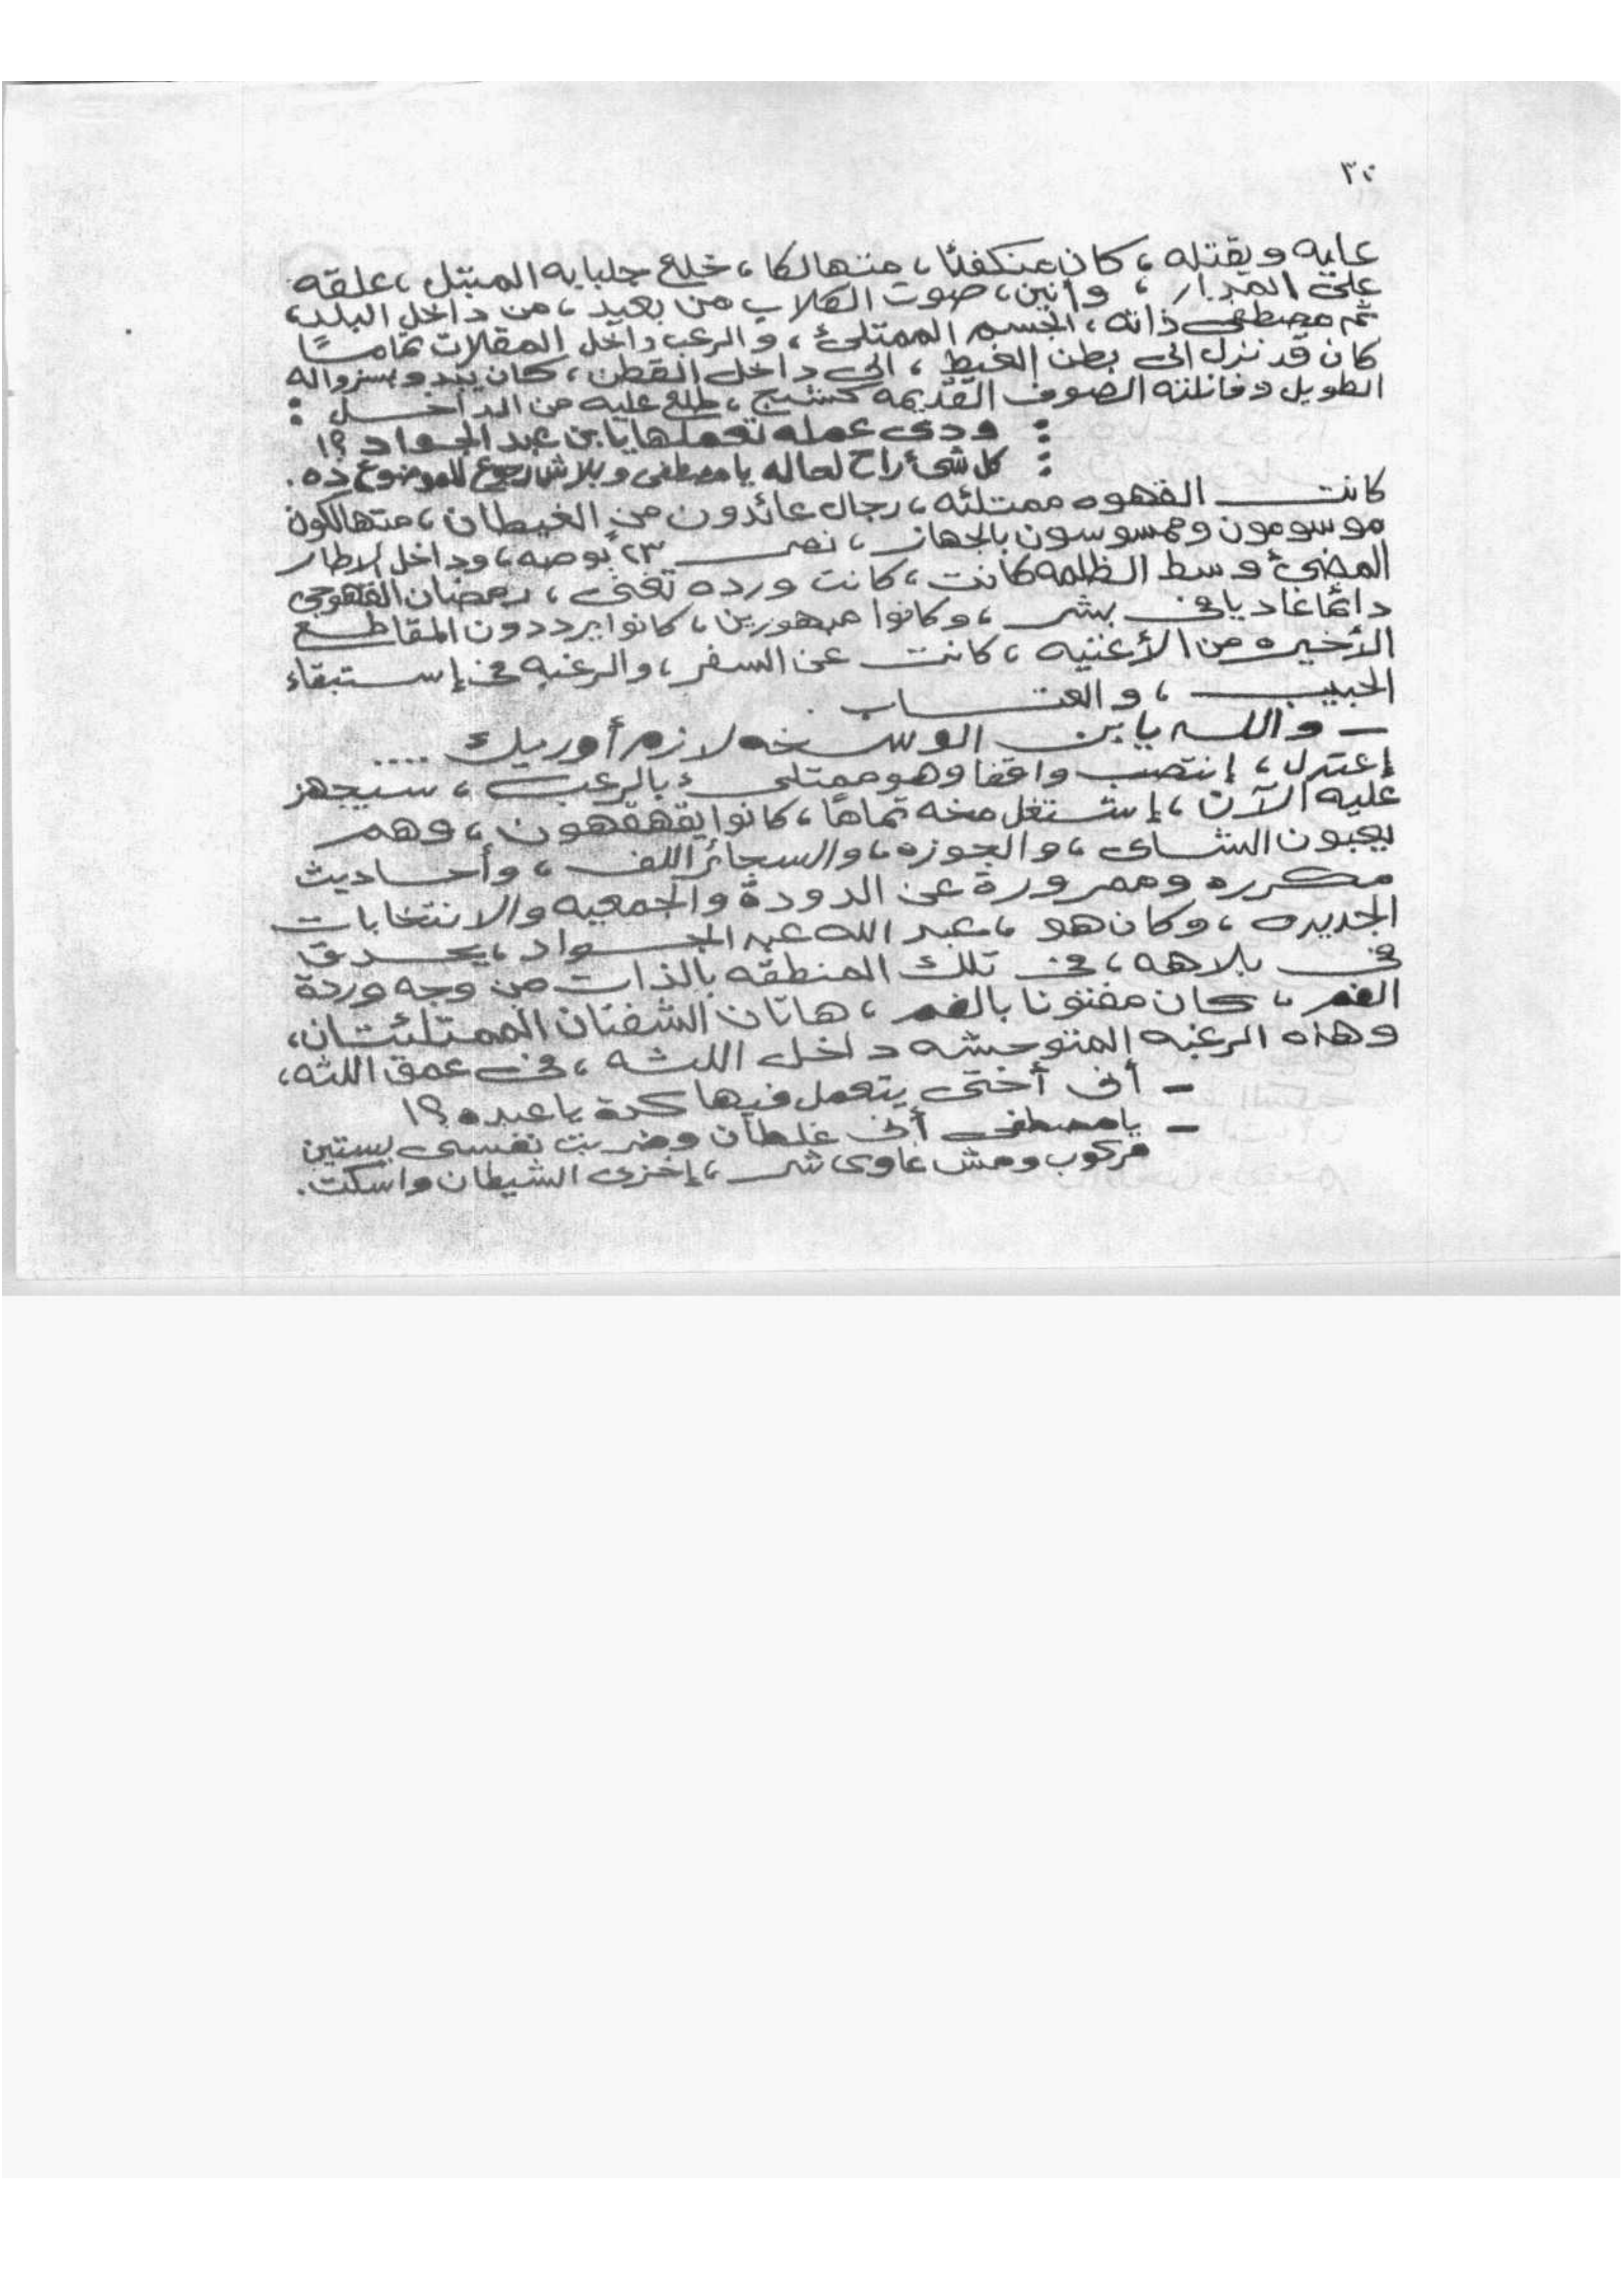 ٣٠
عليه ويقتله ، كان منكفئا ، متهالكا ، خلع جلبابه المبتل ، علقه
على المدار ، وأنين ، صوت الكلاب من بعيد ، من داخل البلد ،
ثم مصطفى ذاته ، الجسم الممتلئ ، والرعب داخل المقلات تماما
كان قد نزل الى بطن الغيط ، الى داخل القطن ، كان يبدو بسرواله
الطويل وفانلته الصوف القديمه كشبح ، طلع عليه من الداخل :
: ودى عمله تعملها يا بن عبد الجواد ؟!
: كل شئ راح لحاله يا مصطفى وبلاش رجوع للموضوع ده .
كانت القهوه ممتلئه ، رجال عائدون من الغيطان ، متهالكون
موسومون وممسوسون بالجهاز ، نصر ٢٣ بوصه ، وداخل الإطار
المضئ وسط الظلمه كانت ، كانت ورده تغنى ، رمضان القهوجى
دائما غاديا فى بشر ، وكانوا مبهورين ، كانوا يرددون المقاطع
الأخيره من الأغنيه ، كانت عن السفر ، والرغبه فى إستبقاء
الحبيب ، والعتاب .
– والله يا بن الوسخه لازم أوريك ....
إعتدل ، إنتصب واقفا وهو ممتلىء بالرعب ، سيجهز
عليه الآن ، إشتغل مخه تماما ، كانوا يقهقهون ، وهم
يعبون الشاى ، والجوزه ، والسجائر اللف ، وأحاديث
مكرره وممرورة عن الدودة والجمعيه والانتخابات
الجديده ، وكان هو ، عبد الله عبد الجواد ، يحدق
فى بلاهه ، فى تلك المنطقه بالذات من وجه وردة
الفم ، كان مفتونا بالفم ، هاتان الشفتان الممتلئتان ،
وهذه الرغبه المتوحشه داخل اللثه ، فى عمق اللثه ،
– أنى أختى يتعمل فيها كدة يا عبده ؟!
– يا مصطفى أنى غلطان وضربت نفسى بستين
مركوب ومش غاوى شر ، إخزى الشيطان واسكت .